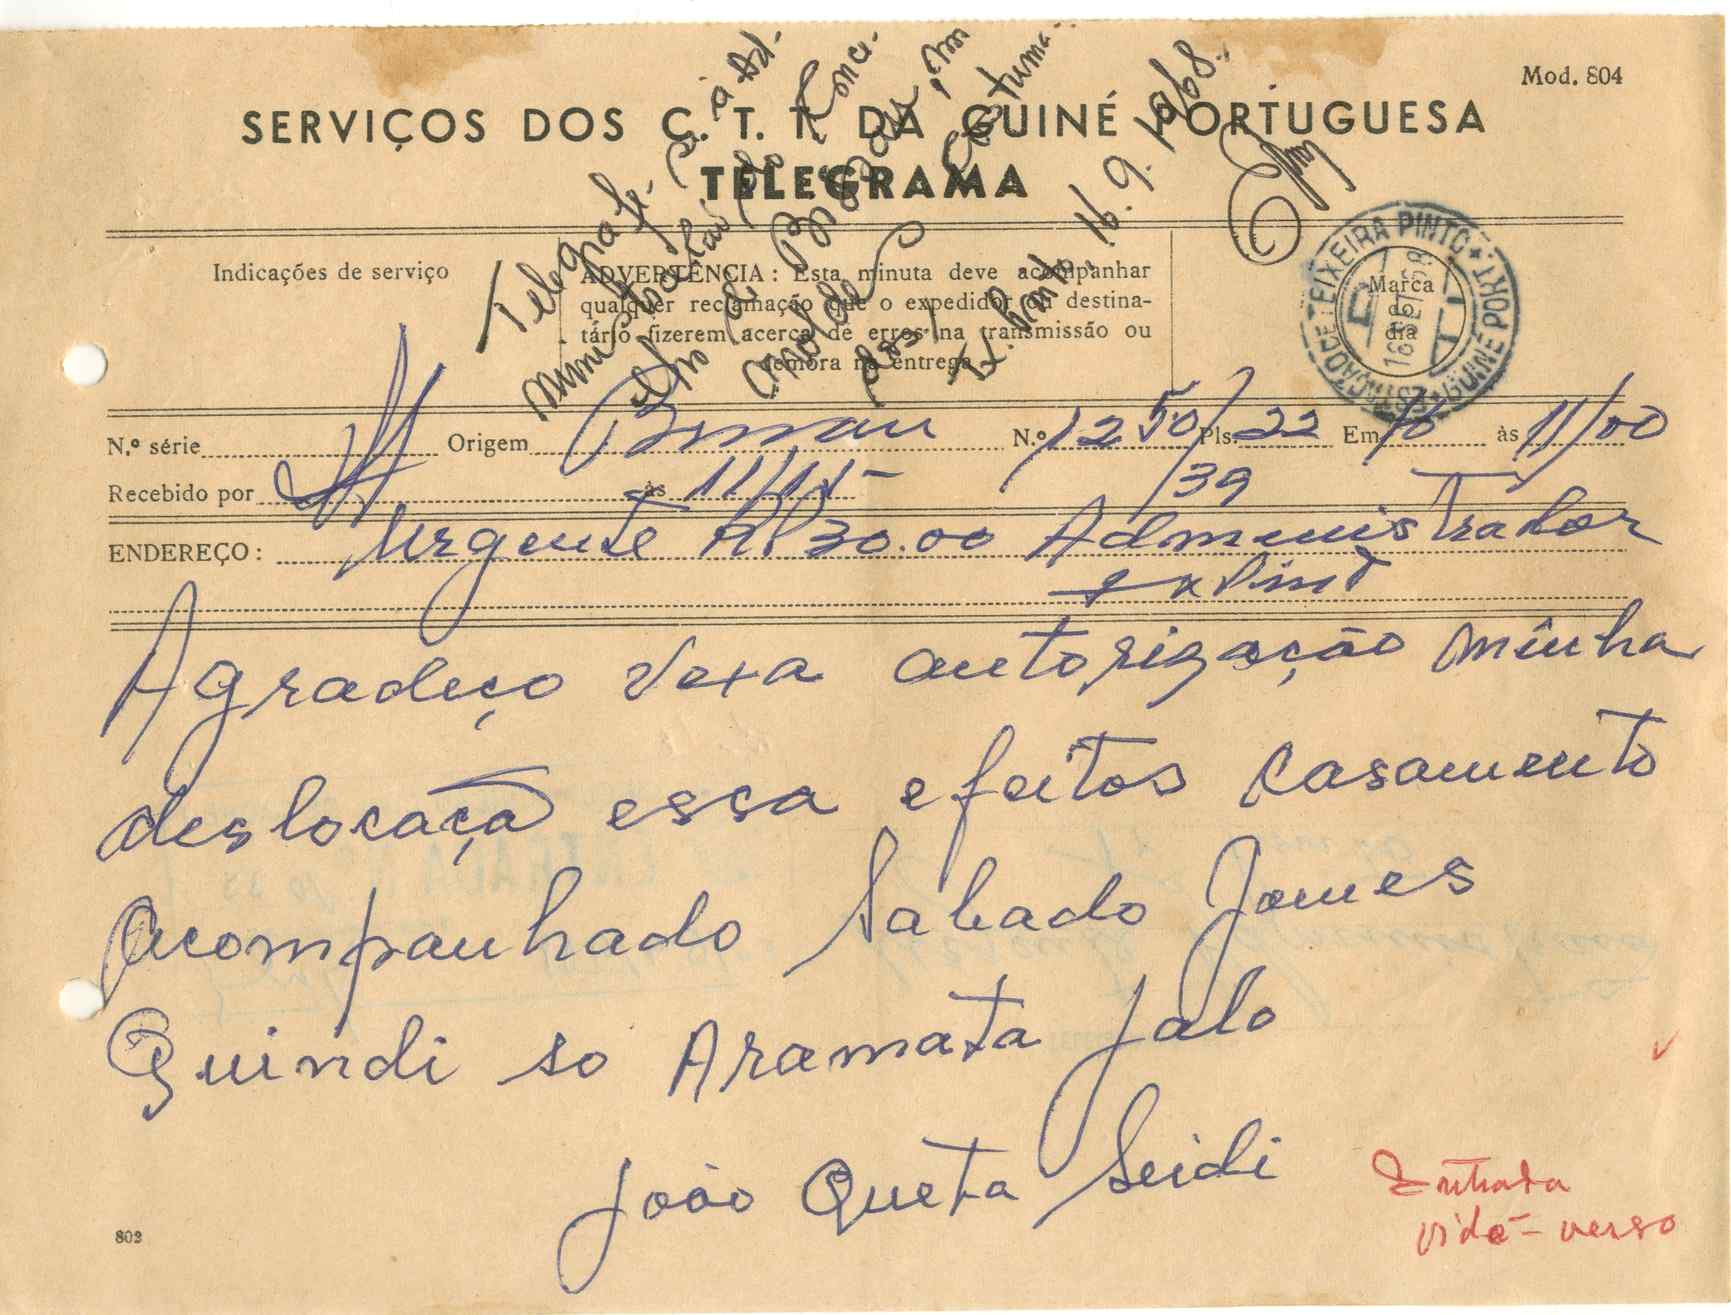 Mod. 804
SERVIÇOS DOS C. T. T. DA GUINÉ PORTUGUESA
TELEGRAMA
Telegrafe à Ad-
16.9.1968.
Indicações de serviço
ADVERTÊNCIA: Esta minuta deve acompanhar
qualquer reclamação que o expedidor ou destina-
tário fizerem acerca de erros na transmissão ou
demora na entrega
ESTAÇÃO DE TEIXEIRA PINTO * GUINÉ PORT. *
Marca
e
dia
N.º série
Origem Bissau N.º 1250/ Pls. 22 Em 16 às 11/00
Recebido por às 11/15 /39
ENDEREÇO: Urgente RP 30.00 Administrador
Agradeço Vexa autorização minha
deslocaçã essa efeitos casamento
acompanhado Sabado Gomes
Quindi so Aramata Jalo
João Queta Seidi
802
Entrada
vidé-verso